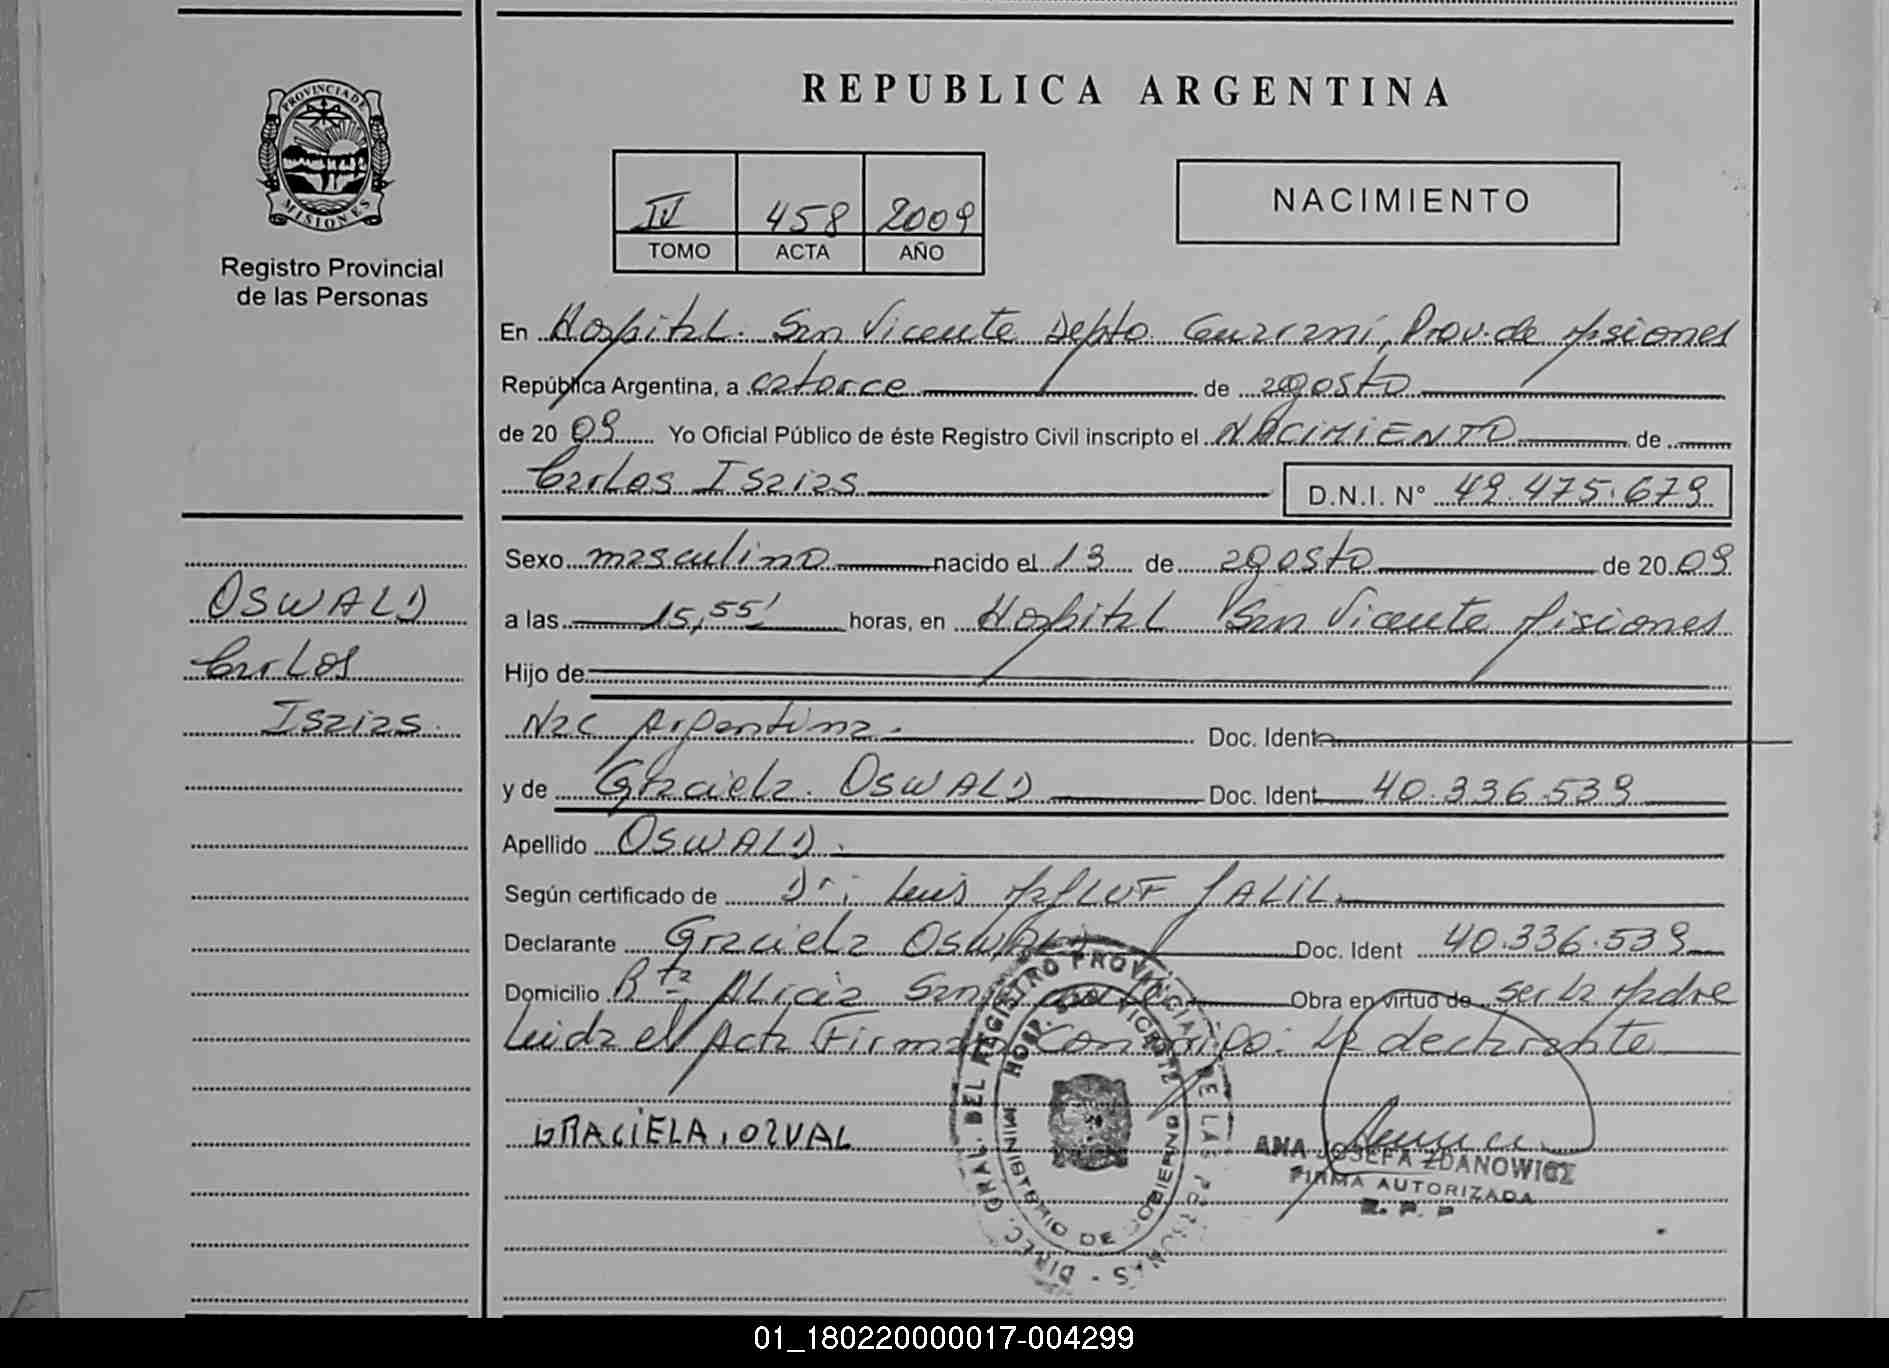 PROVINCIA DE
MISIONES
Registro Provincial
de las Personas
OSWALD
Carlos
Isaias.
REPUBLICA ARGENTINA
IV 458 2009
TOMO ACTA AÑO
NACIMIENTO
En Hospital. San Vicente Depto. Guarani, Prov. de Misiones
República Argentina, a catorce de agosto
de 20 09 Yo Oficial Público de éste Registro Civil inscripto el NACIMIENTO de
Carlos Isaias D.N.I. N° 49.475.679
Sexo masculino nacido el 13 de agosto de 20 09
a las 15,55' horas, en Hospital San Vicente Misiones
Hijo de
Nac Argentina. Doc. Ident
y de Graciela. OSWALD Doc. Ident 40.336.539
Apellido OSWALD.
Según certificado de Dr; Luis JALIL.
Declarante Graciela OSWALD Doc. Ident 40.336.539
Domicilio Bta Alicia San Obra en virtud de ser la Madre
Leida el Acta Firma Conmigo: La declarante
GRACIELA, OZVAL
DIREC. GRAL. DEL REGISTRO PROVINCIAL DE LAS PERSONAS -
HOSP. SAN VICENTE
MINISTERIO DE GOBIERNO
ANA JOSEFA ZDANOWICZ
FIRMA AUTORIZADA
R. P. P
01_180220000017-004299